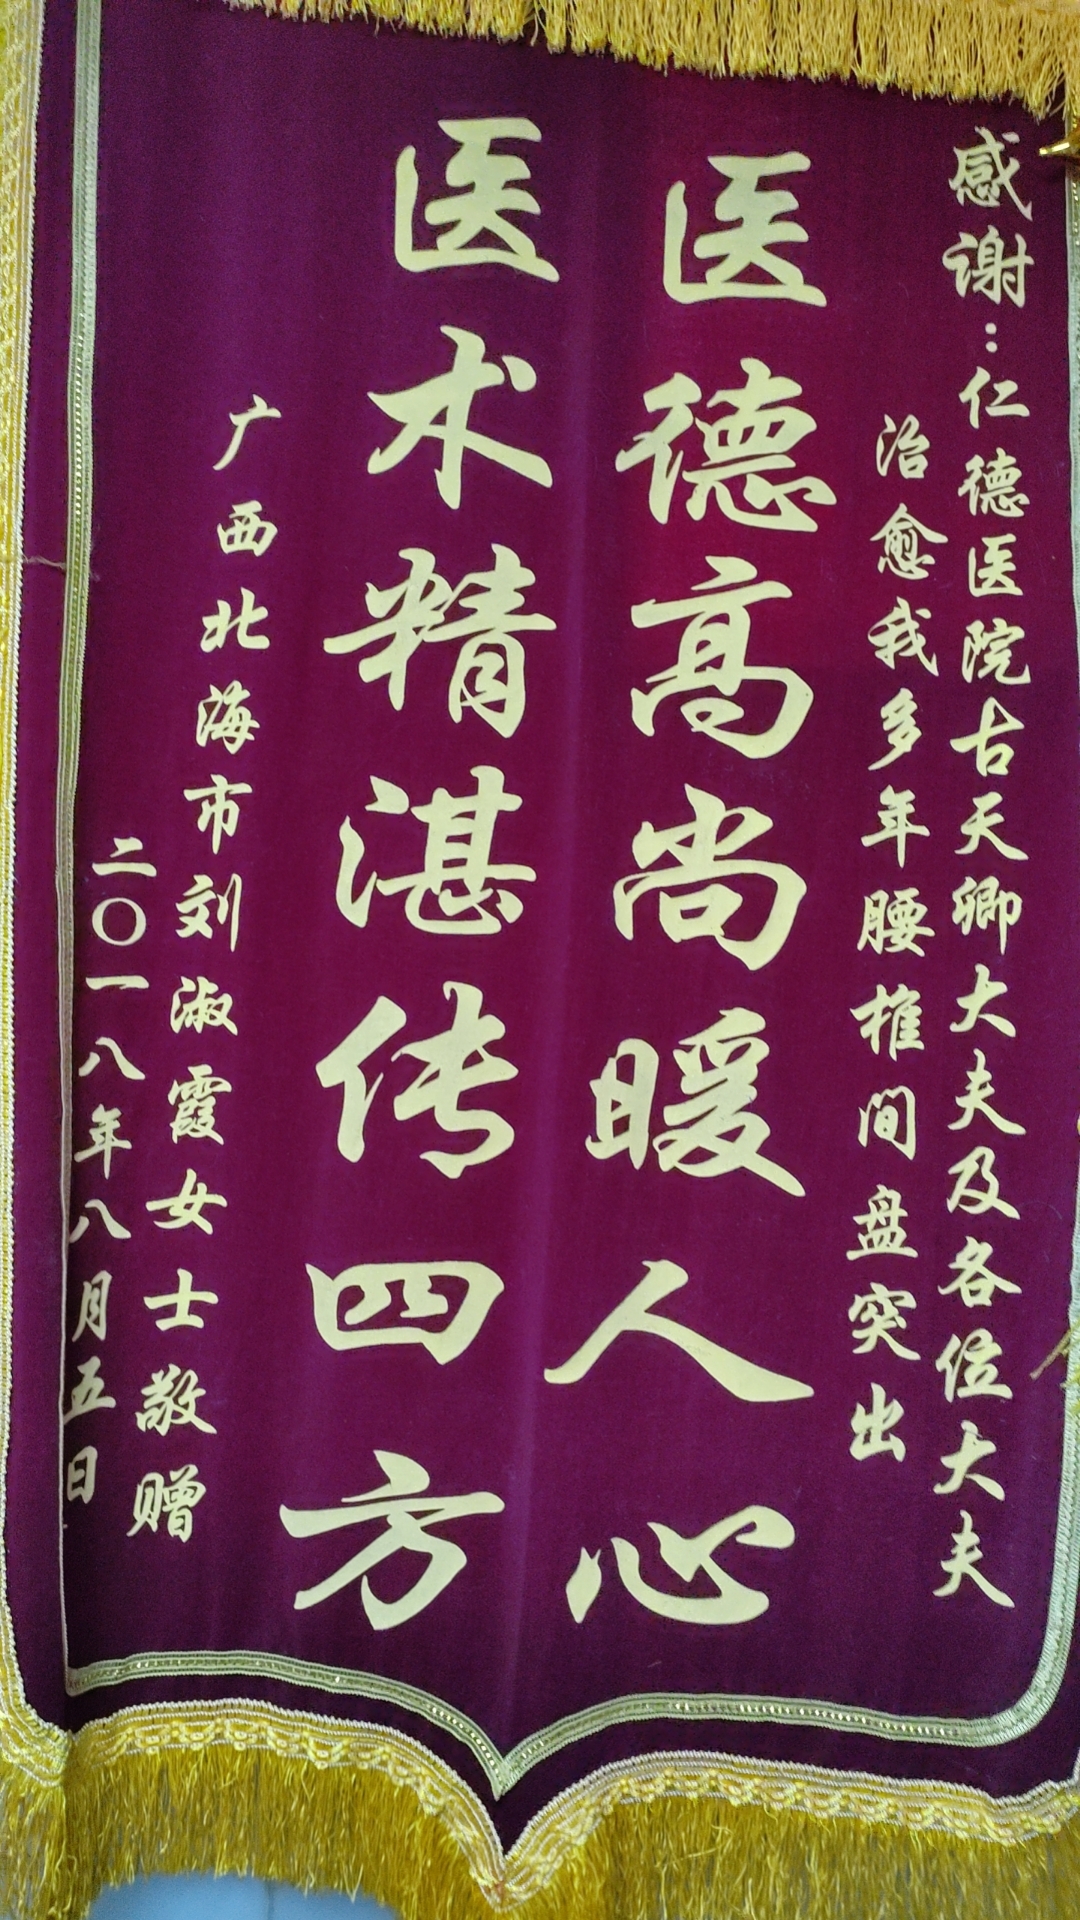 感谢：仁德医院古天卿大夫及各位大夫
治愈我多年腰椎间盘突出
医德高尚暖人心
医术精湛传四方
广西北海市刘淑霞女士敬赠
二〇一八年八月五日